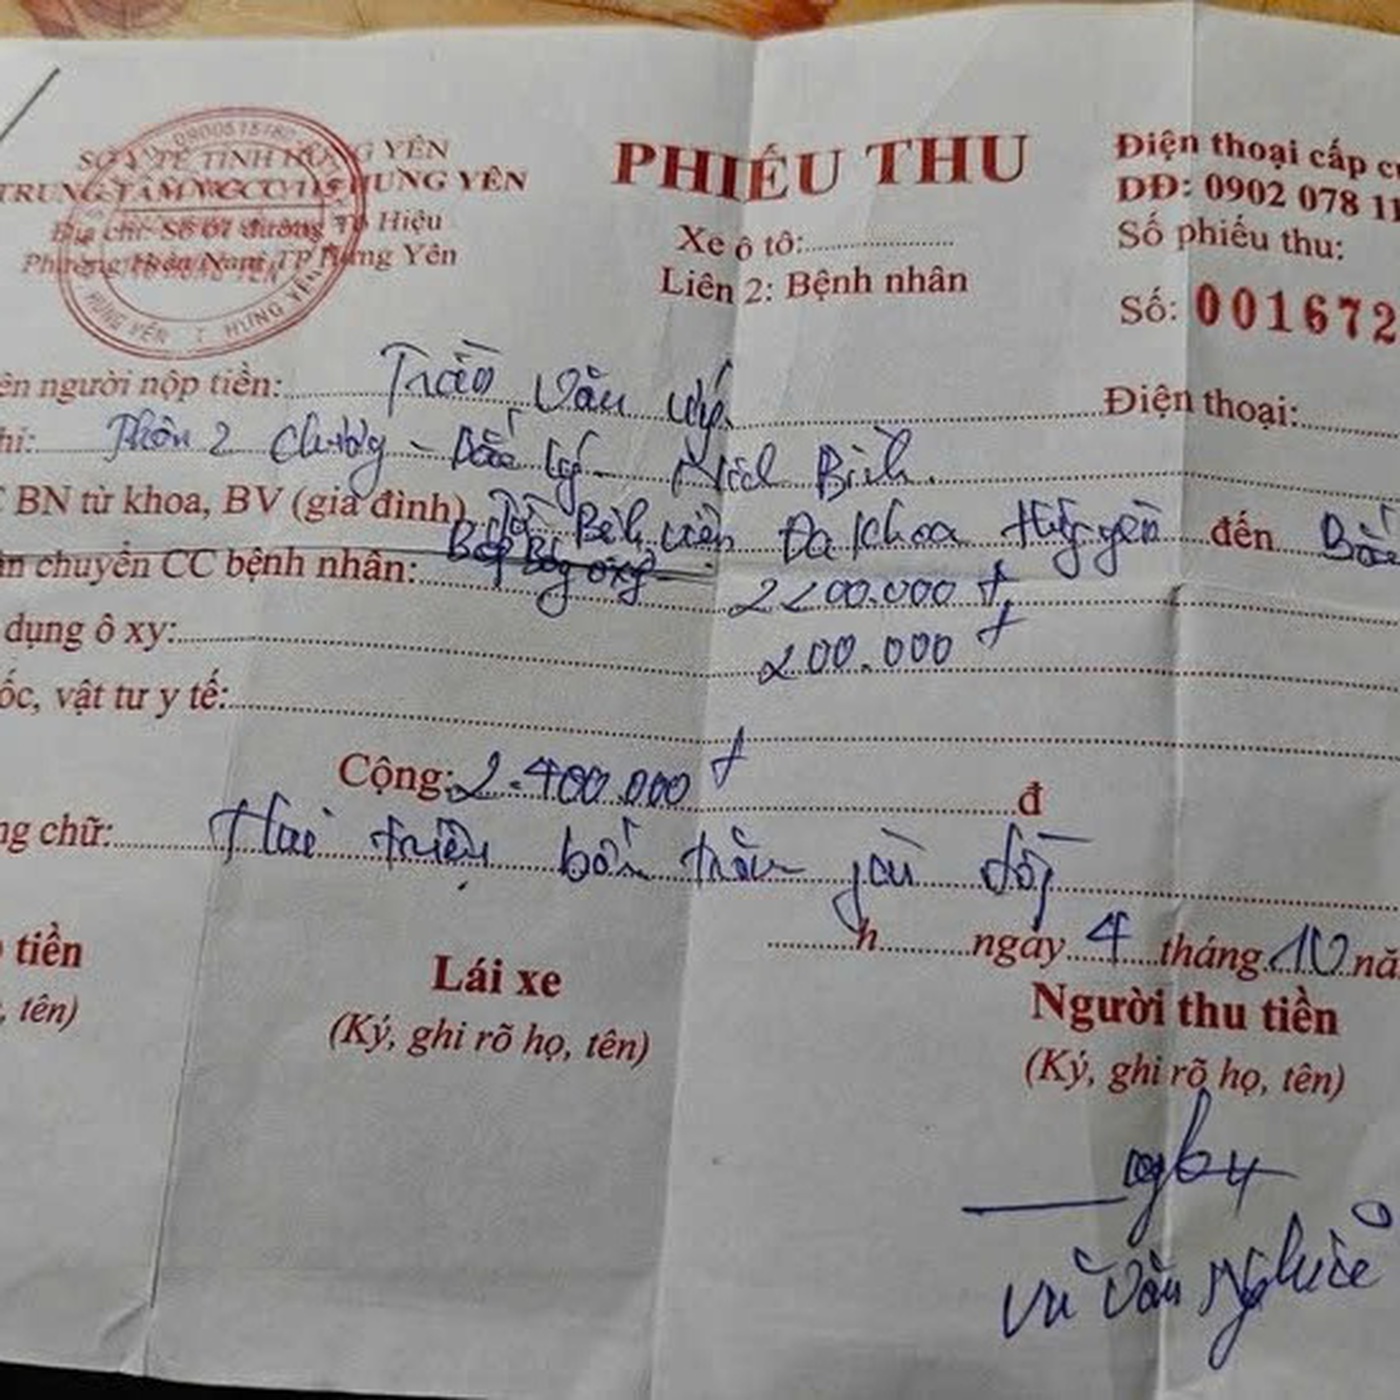 SỞ Y TẾ TỈNH HƯNG YÊN
TRUNG TÂM VCCC 115 HƯNG YÊN
Địa chỉ: Số 67 đường Tô Hiệu
Phường Hiến Nam TP Hưng Yên
HƯNG YÊN T. HƯNG YÊN
PHIẾU THU
Xe ô tô:
Liên 2: Bệnh nhân
Điện thoại cấp c
DĐ: 0902 078 11
Số phiếu thu:
Số: 001672
ên người nộp tiền: Trần Văn Điện thoại:
hỉ: Thôn 2 - Bắc Lý - Bình
BN từ khoa, BV (gia đình) Từ Bệnh viện Đa khoa Hưng yên đến
n chuyển CC bệnh nhân: 2200.000 đ
dụng ô xy: 200.000 đ
ốc, vật tư y tế:
Cộng: 2.400.000 đ đ
ng chữ: Hai triệu bốn trăm đồng
h ngày 4 tháng 10 nă
tiền
, tên)
Lái xe
(Ký, ghi rõ họ, tên)
Người thu tiền
(Ký, ghi rõ họ, tên)
Vũ Văn